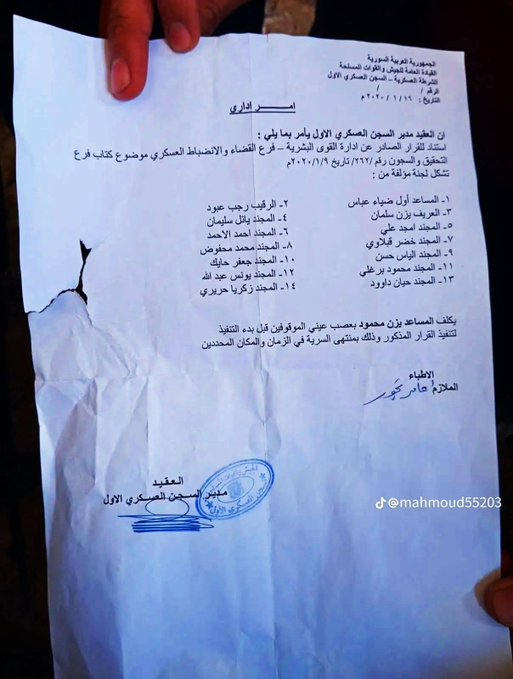 الجمهورية العربية السورية
القيادة العامة للجيش والقوات المسلحة
الشرطة العسكرية – السجن العسكري الاول
الرقم /        /
التاريخ : ١٦ / ١ / ٢٠٢٠ م
امـــر اداري
ان العقيد مدير السجن العسكري الاول يأمر بما يلي :
استناد للقرار الصادر عن ادارة القوى البشرية – فرع القضاء والانضباط العسكري موضوع كتاب فرع
التحقيق والسجون رقم /٢٦٢/ تاريخ ٢٠٢٠/١/٩م
تشكل لجنة مؤلفة من :
١- المساعد أول ضياء عباس
٢- الرقيب رجب عبود
٣- العريف يزن سلمان
٤- المجند يائل سليمان
٥- المجند امجد علي
٦- المجند احمد الاحمد
٧- المجند خضر قبلاوي
٨- المجند محمد محفوض
٩- المجند الياس حسن
١٠- المجند جعفر حايك
١١- المجند محمود برغلي
١٢- المجند يونس عبد الله
١٣- المجند حيان داوود
١٤- المجند زكريا حريري
يكلف المساعد يزن محمود بعصب عيني الموقوفين قبل بدء التنفيذ
لتنفيذ القرار المذكور وذلك بمنتهى السرية في الزمان والمكان المحددين
الاطباء
الملازم
العقيد
مدير السجن العسكري الاول
@mahmoud55203